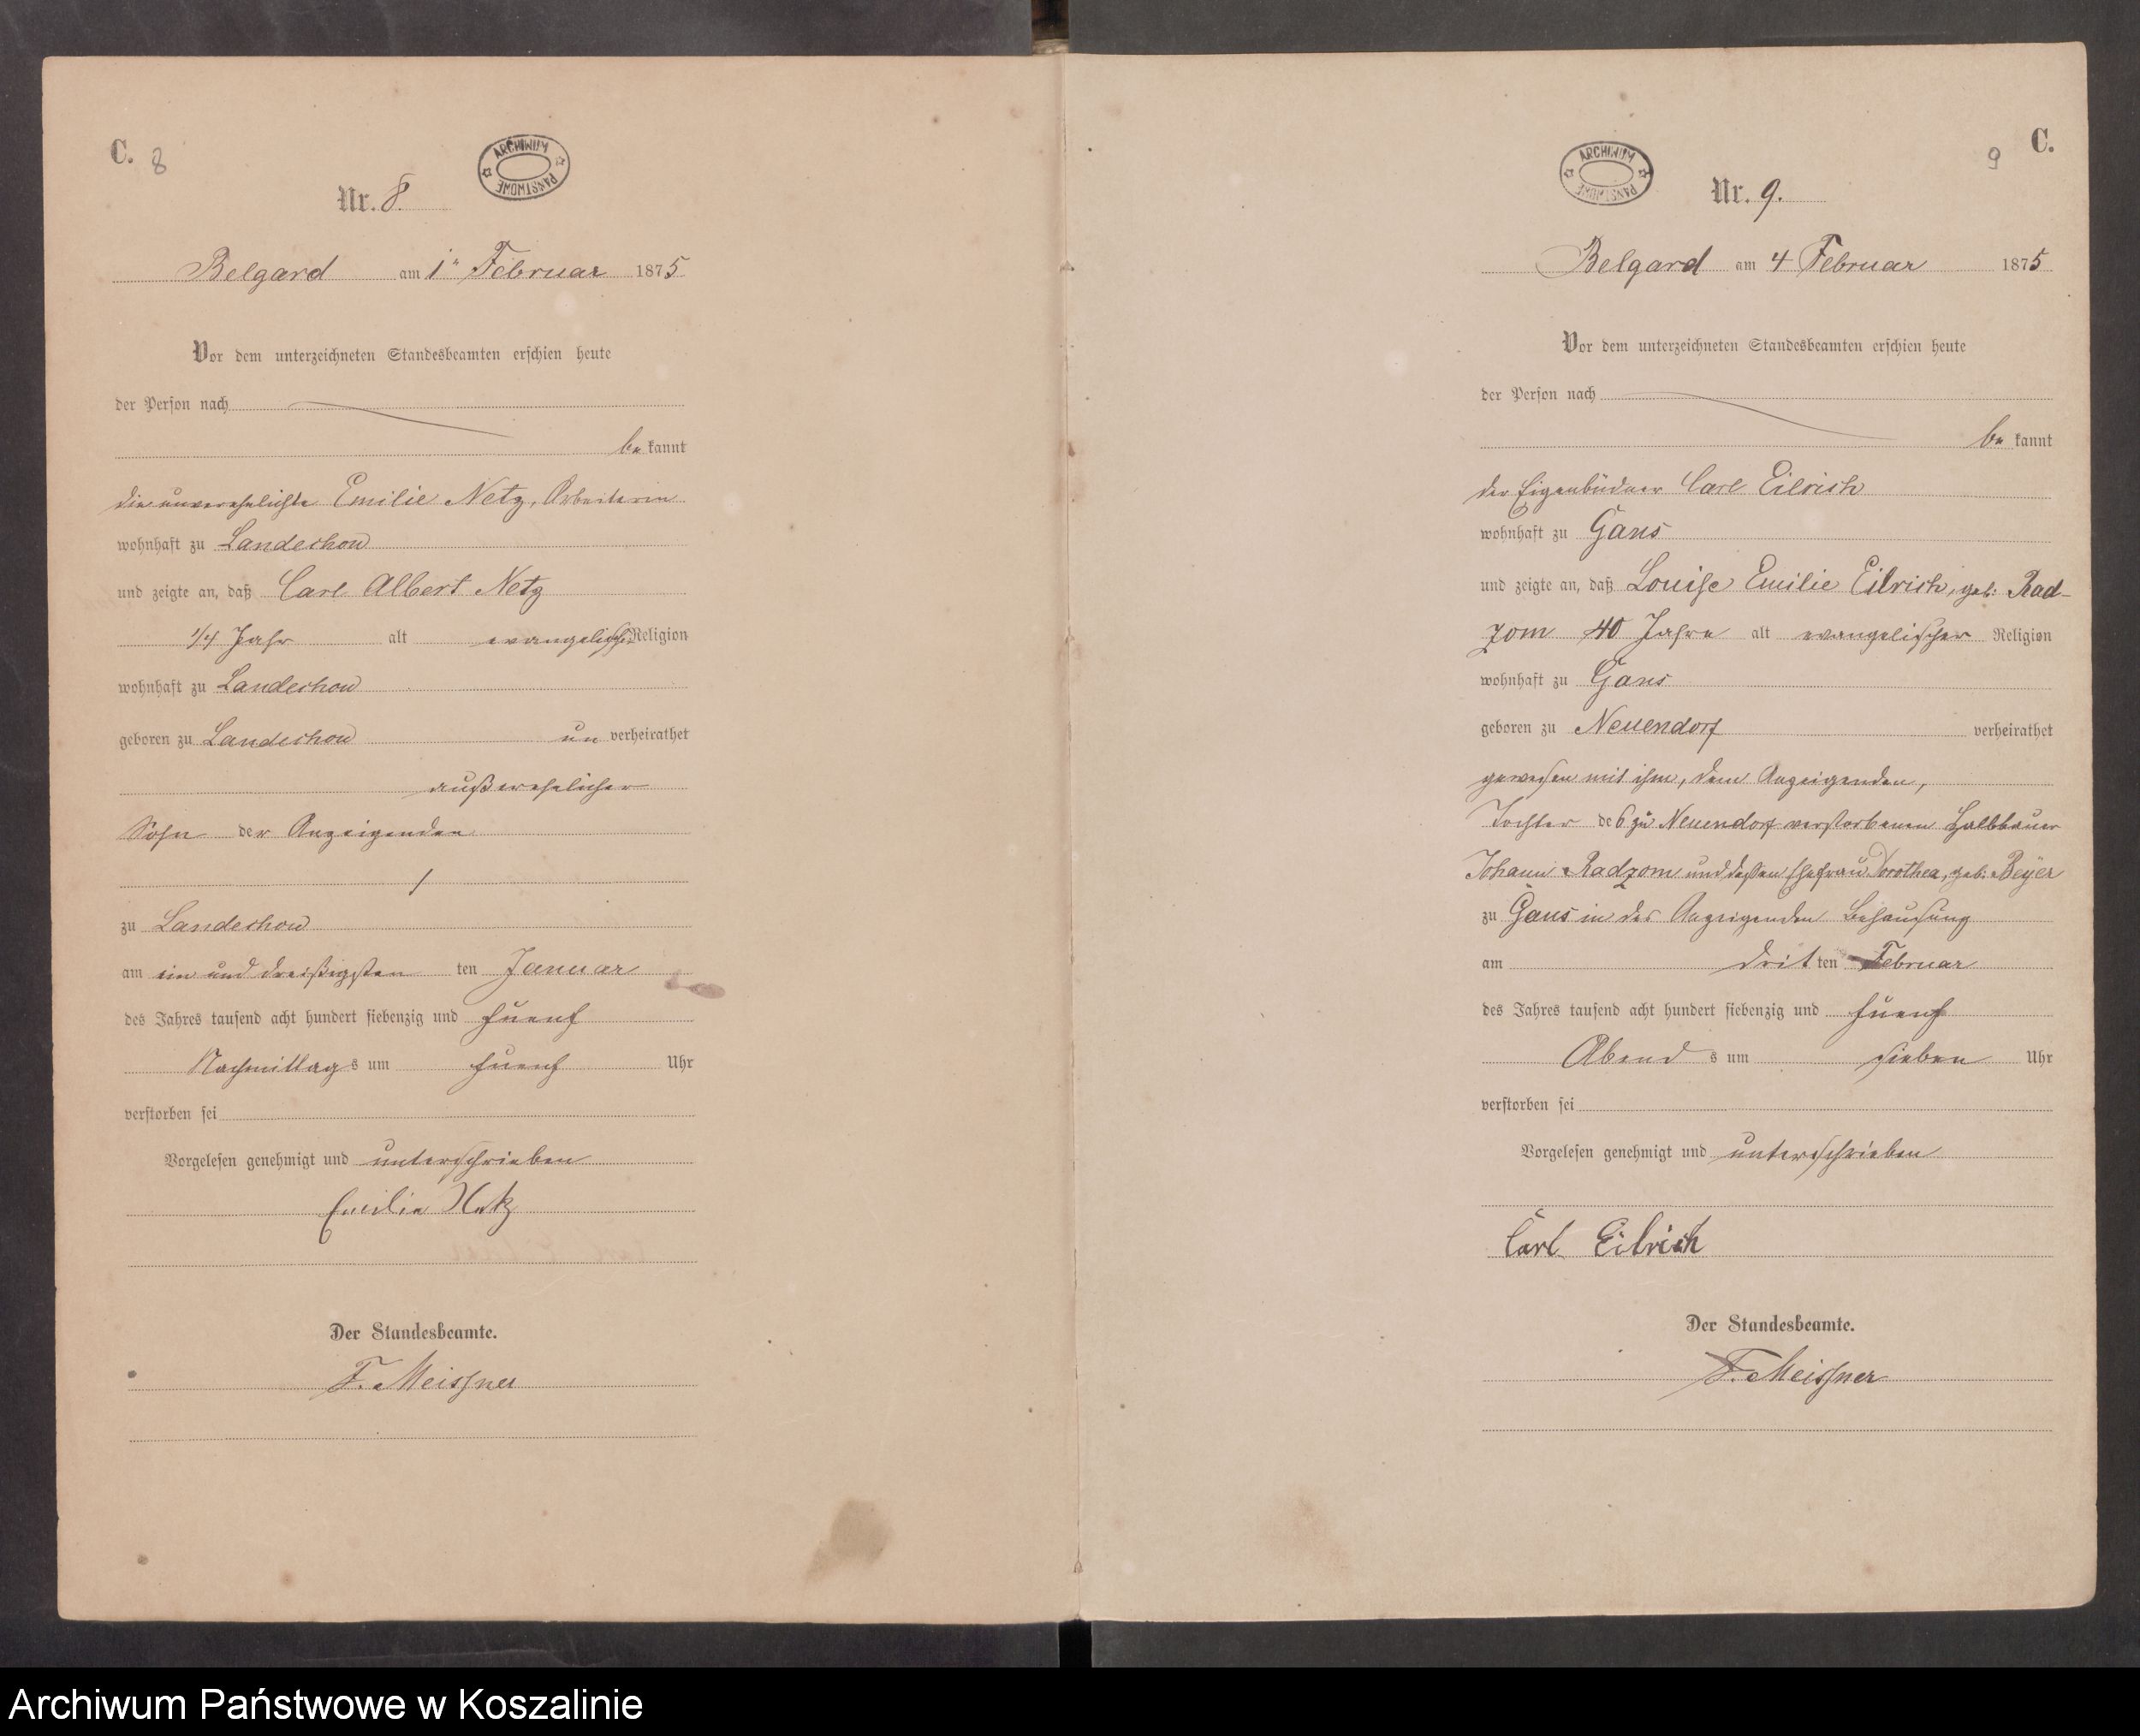 C. 8
ARCHIWUM PAŃSTWOWE
Nr. 8.
Belgard am 1" Februar 1875
Vor dem unterzeichneten Standesbeamten erschien heute
der Person nach
be kannt
die unverehelichte Emilie Netz, Arbeiterin
wohnhaft zu Landechow
und zeigte an, daß Carl Albert Netz
1/4 Jahr alt evangelischer Religion
wohnhaft zu Landechow
geboren zu Landechow un verheirathet
außerehelicher
Sohn der Anzeigenden
zu Landechow
am ein und dreißigsten ten Januar
des Jahres tausend acht hundert siebenzig und fuenf
Nachmittag s um fuenf Uhr
verstorben sei
Vorgelesen genehmigt und unterschrieben
Emilie Netz
Der Standesbeamte.
F. Meissner
9 C.
ARCHIWUM PAŃSTWOWE
Nr. 9.
Belgard am 4 Februar 1875
Vor dem unterzeichneten Standesbeamten erschien heute
der Person nach
be kannt
der Eigenbüdner Carl Eilrich
wohnhaft zu Gans
und zeigte an, daß Louise Emilie Eilrich, geb: Rad-
zom 40 Jahre alt evangelischer Religion
wohnhaft zu Gans
geboren zu Neuendorf verheirathet
gewesen mit ihm, dem Anzeigenden,
Tochter des zu Neuendorf verstorbenen Halbbauer
Johann Radzom und dessen Ehefrau Dorothea, geb: Beÿer
zu Gans in des Anzeigenden Behausung
am drit ten Februar
des Jahres tausend acht hundert siebenzig und fuenf
Abend s um sieben Uhr
verstorben sei
Vorgelesen genehmigt und unterschrieben
Carl Eilrich
Der Standesbeamte.
F. Meissner
Archiwum Państwowe w Koszalinie